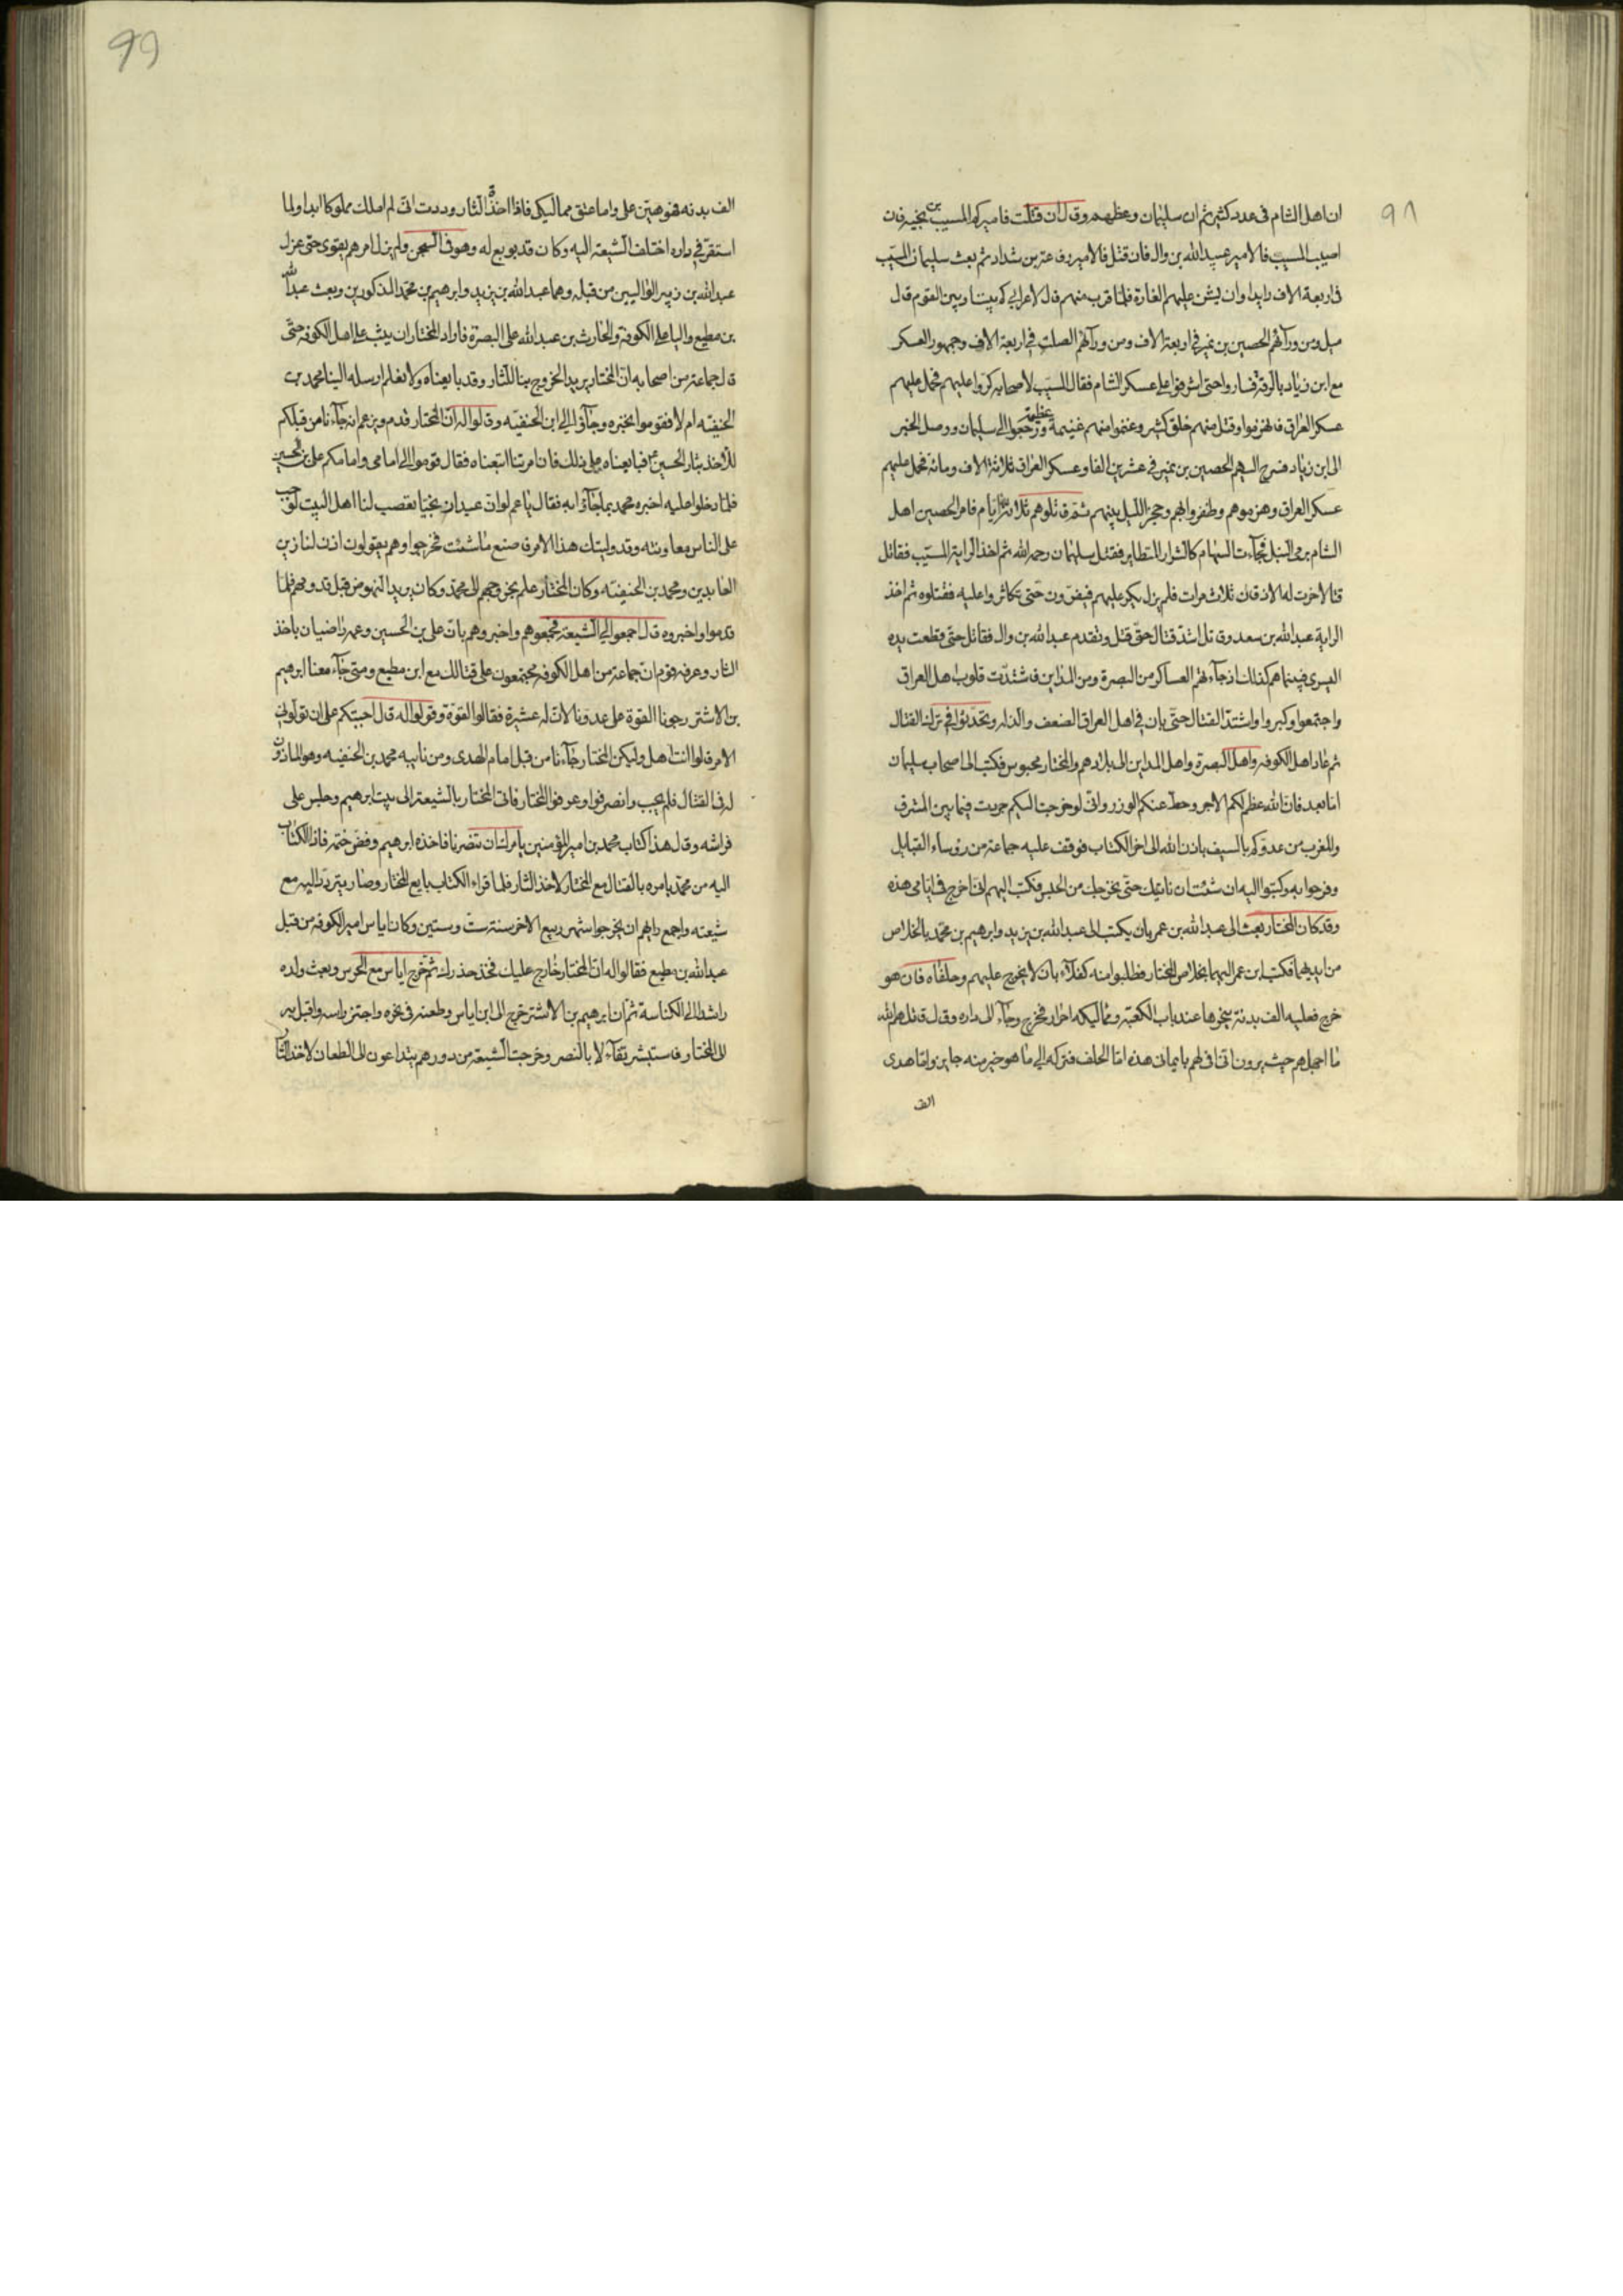 ٩٨
ان اهل الشام فى عدد كثير ثم ان سليمان وعظهم وقال ان قتلت فاميركم المسيب بن نجيه فان
اصيب المسيب فالامير عبيد الله بن وال فان قتل فالامير رفاعة بن شداد ثم بعث سليمان المسيّب
فى اربعة الاف رايدا وان يشن عليهم الغارة فلما قرب منهم قال لاعرابى كم بيننا وبين القوم قال
ميل ومن ورآئهم الحصين بن نمير فى اربعة الاف ومن ورآئهم الصلت فى اربعة الاف وجمهور العسكر
مع ابن زياد بالرقة فساروا حتى اشرفوا على عسكر الشام فقال المسيّب لاصحابه كرّوا عليهم فحمل عليهم
عسكر العراق فانهزموا وقتل منهم خلق كثير وغنموا منهم غنيمة عظيمة ورجعوا الى سليمان ووصل الخبر
الى ابن زياد فسرح اليهم الحصين بن نمير فى عشرين الفا وعسكر العراق ثلاثة الاف ومائة فحمل عليهم
عسكر العراق وهزموهم وظفروا بهم وحجز الليل بينهم ثم قاتلوهم ثلاثة ايام فامر الحصين اهل
الشام برمى النبل فجآءت السهام كالشرار المتطاير فقتل سليمان رحمه الله ثم اخذ الراية المسيّب فقاتل
قتالا خرت له الاذقان ثلاث مرات فلم يزل يكر عليهم فيفرّون حتى تكاثروا عليه فقتلوه ثم اخذ
الراية عبد الله بن سعد وقاتل اشدّ قتال حتى قتل وتقدم عبد الله بن وال فقاتل حتى قطعت يده
اليسرى فبينما هم كذلك اذ جآءتهم العساكر من البصرة ومن المداين فاشتدّت قلوب اهل العراق
واجتمعوا وكبروا واشتدّ القتال حتى بان فى اهل العراق الضعف والذله وتحدّثوا فى ترك القتال
ثم عاد اهل الكوفه واهل البصرة واهل المداين الى بلادهم والمختار محبوس فكتب الى اصحاب سليمان
اما بعد فان الله عظم لكم الاجر وحط عنكم الوزر وانى لو خرجت اليكم جردت فيما بين المشرق
والمغرب من عدوّكم بالسيف باذن الله الى اخر الكتاب فوقف عليه جماعة من رؤساء القبايل
وفرحوا به وكتبوا اليه ان شئت ان ناتيك حتى نخرجك من الحبس فكتب اليهم انى اخرج فى ايامى هذه
وقد كان المختار بعث الى عبد الله بن عمر بان يكتب الى عبد الله بن يزيد وابرهيم بن محمّد بالخلاص
من ايديهما فكتب ابن عمر اليهما بخلاص المختار فطلبوا منه كفلآء بان لا يخرج عليهم وحلفاه فان هو
خرج فعليه الف بدنة ينحرها عند باب الكعبة ومماليكه احرار فخرج وجآء الى داره وقال قاتلهم الله
ما اجهلهم حيث يرون انى افى لهم بايمانى هذه اما الحلف فتركه الى ما هو خير منه جايز واما هدى
الف
99
الف بدنه فهو هين على واما عتق مماليكى فاذا اخذت الثار وددت انى لم املك مملوكا ابدا ولما
استقرّ فى داره اختلف الشيعة اليه وكان قد بويع له وهو فى السجن ولم يزل امرهم يقوى حتى عزل
عبد الله بن زبير الواليين من قبله وهما عبد الله بن يزيد وابرهيم بن محمّد المذكورين وبعث عبد الله
بن مطيع واليا على الكوفة والحارث بن عبد الله على البصرة فاراد المختار ان يثب على اهل الكوفه حتى
قال جماعة من اصحابه ان المختار يريد الخروج بنا للثار وقد بايعناه ولا نعلم ارسله الينا محمد بن
الحنفيّه ام لا فقوموا نخبره وجآؤا الى ابن الحنفيّه وقالوا له ان المختار قدم ويزعم انه جآءنا من قبلكم
للأخذ بثار الحسين ع فبايعناه على ذلك فان امرتنا اتبعناه فقال قوموا الى امامى وامامكم على بن الحسين
فلما دخلوا عليه اخبره محمد بما جآؤا به فقال يا عم لو ان عبدا زنجيا تعصب لنا اهل البيت لوجب
على الناس معاونته وقد وليتك هذا الامر فاصنع ما شئت فخرجوا وهم يقولون اذن لنا زين
العابدين ومحمد بن الحنفيّه وكان المختار علم بخروجهم الى محمّد وكان يريد النهوض قبل قدومهم فلمّا
قدموا واخبروه قال اجمعوا الى الشيعة فجمعوهم واخبروهم بان على بن الحسين وعمه راضيان باخذ
الثار وعرفه قوم ان جماعة من اهل الكوفه مجتمعون على قتالك مع ابن مطيع ومتى جآء معنا ابرهيم
بن الاشتر رجونا القوة على عدونا لان له عشيرة فقال القوه وقولوا له قال اجبتكم على ان تولونى
الامر قالوا انت اهل ولكن المختار جآءنا من قبل امام الهدى ومن نايبه محمد بن الحنفيه وهو الماذون
له فى القتال فلم يجب وانصرفوا وعرفوا المختار فاتى المختار بالشيعة الى بيت ابرهيم وجلس على
فراشه وقال هذا كتاب محمد بن امير المؤمنين يأمرك ان تنصرنا فاخذه ابرهيم وفضّ ختمه فاذا الكتاب
اليه من محمّد يامره بالقتال مع المختار لاخذ الثار فلما قراء الكتاب بايع المختار وصار يتردّد اليه مع
شيعته واجمع رايهم ان يخرجوا شهر ربيع الاخر سنة ستّ وستين وكان اياس امير الكوفه من قبل
عبد الله بن مطيع فقالوا له ان المختار خارج عليك فخذ حذرك ثم خرج اياس مع الحرس وبعث ولده
راشدا الى الكناسة ثم ان ابرهيم بن الاشتر خرج الى ابن اياس وطعنه فى نحره واجتز راسه واقبل به
الى المختار فاستبشر تفآءلا بالنصر وخرجت الشيعة من دورهم يتداعون الى الطعان لاخذ الثار